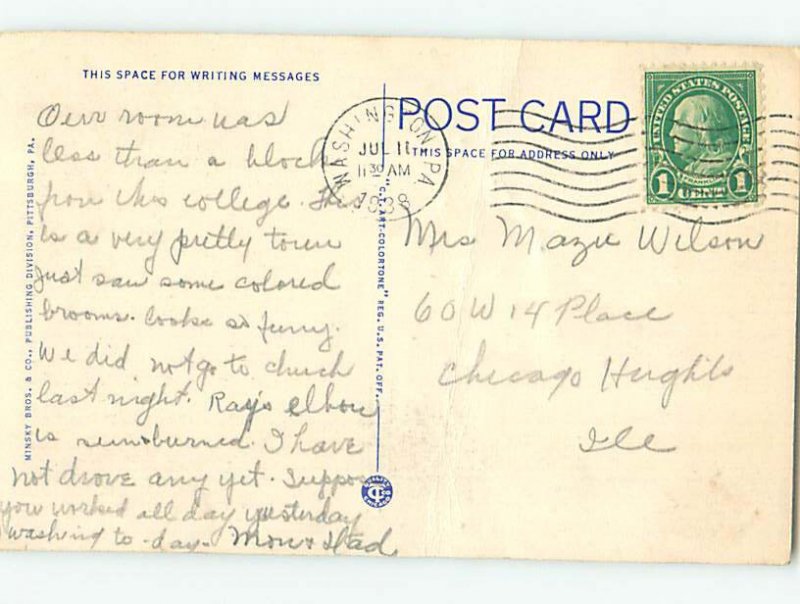 THIS SPACE FOR WRITING MESSAGES
Our room was
less than a block
from this college. This
is a very pretty town
Just saw some colored
brooms. looks so funny.
We did not go to church
last night. Ray's elbow
is sunburned. I have
not drove any yet. Suppose
you worked all day yesterday
washing to-day. Mom & Dad
MINSKY BROS. & CO., PUBLISHING DIVISION, PITTSBURGH, PA.
"C.T. ART-COLORTONE" REG. U.S. PAT. OFF.
POST CARD
THIS SPACE FOR ADDRESS ONLY
WASHINGTON, PA
JUL 11
11 30 AM
1938
UNITED STATES POSTAGE
FRANKLIN
1 CENT 1
Mrs Mazie Wilson
60 W 14 Place
Chicago Heights
Ill